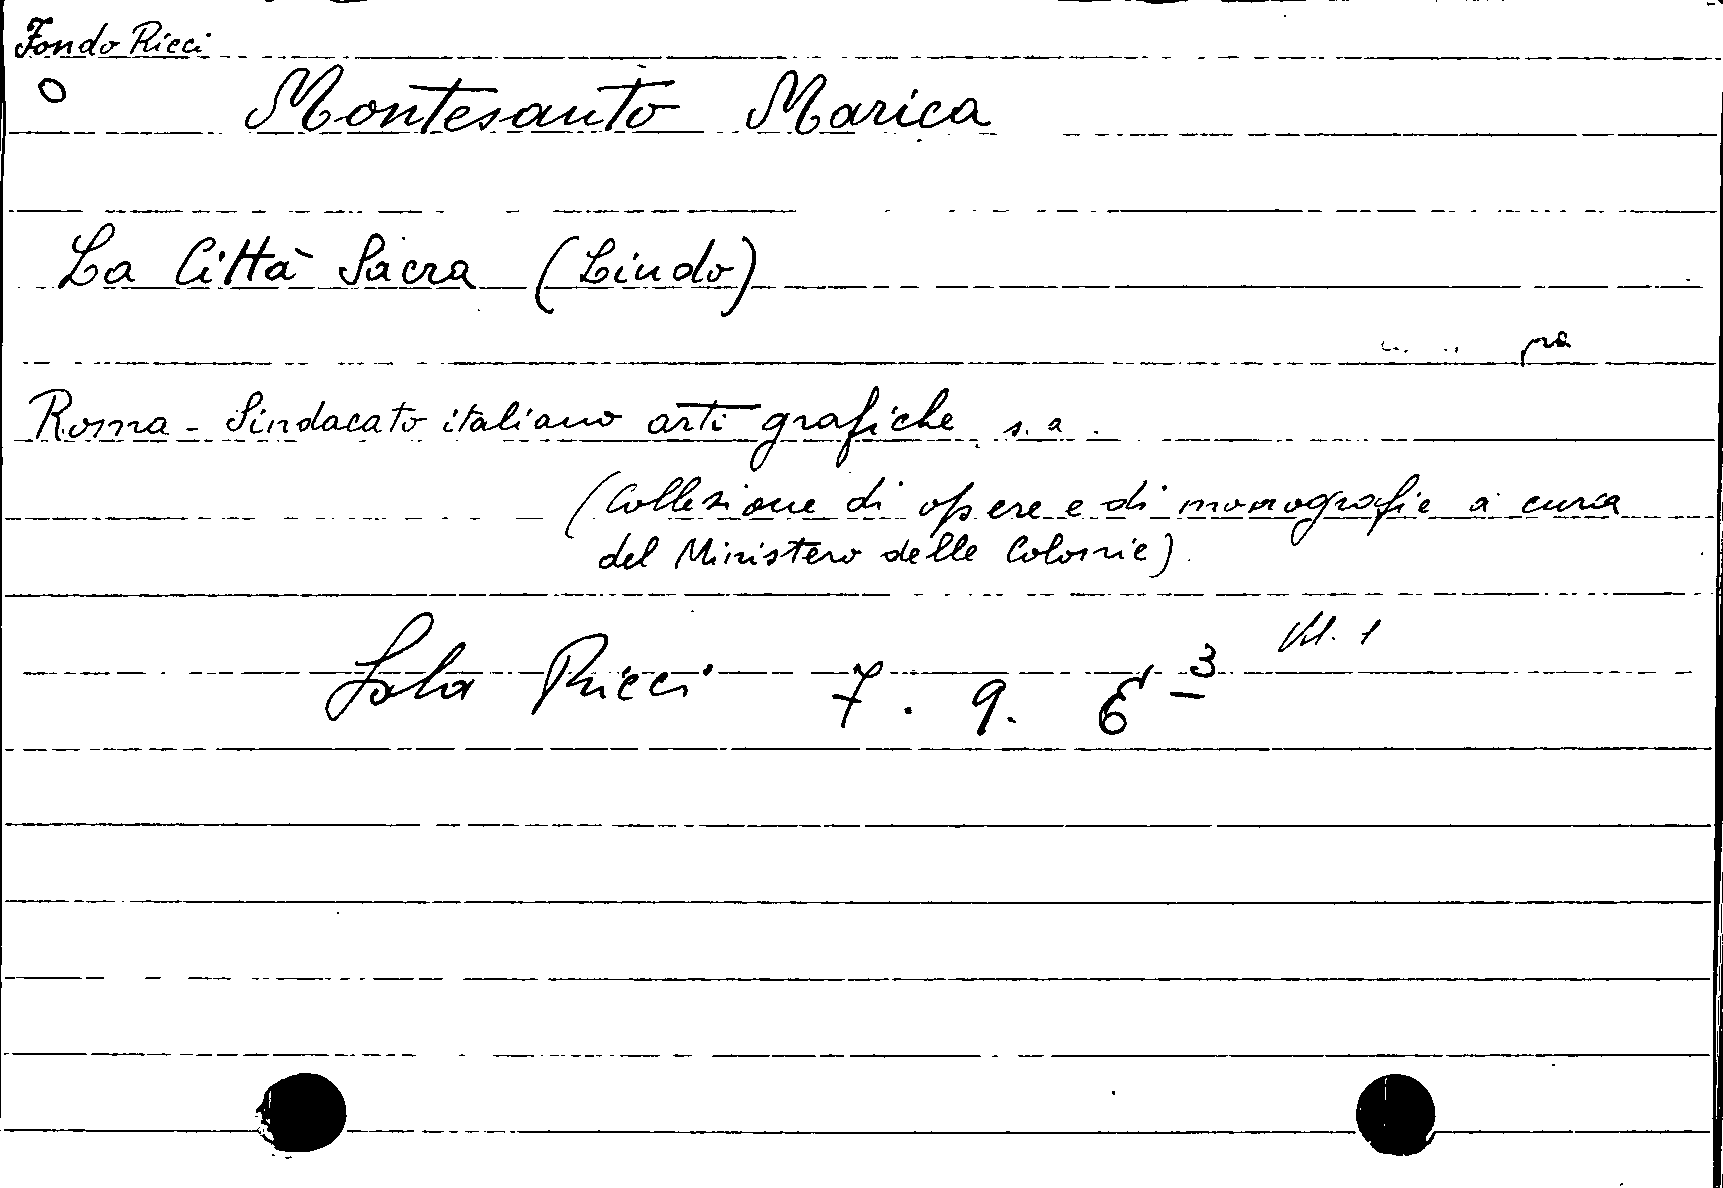 Fondo Ricci
Montesanto Marica
La Città Sacra (Lindo)
Roma - Sindacato italiano arti grafiche s. a.
(Collezione di opere e di monografie a cura
del Ministero delle Colonie).
Vol. 1
Sala Ricci 7. 9. 6 3